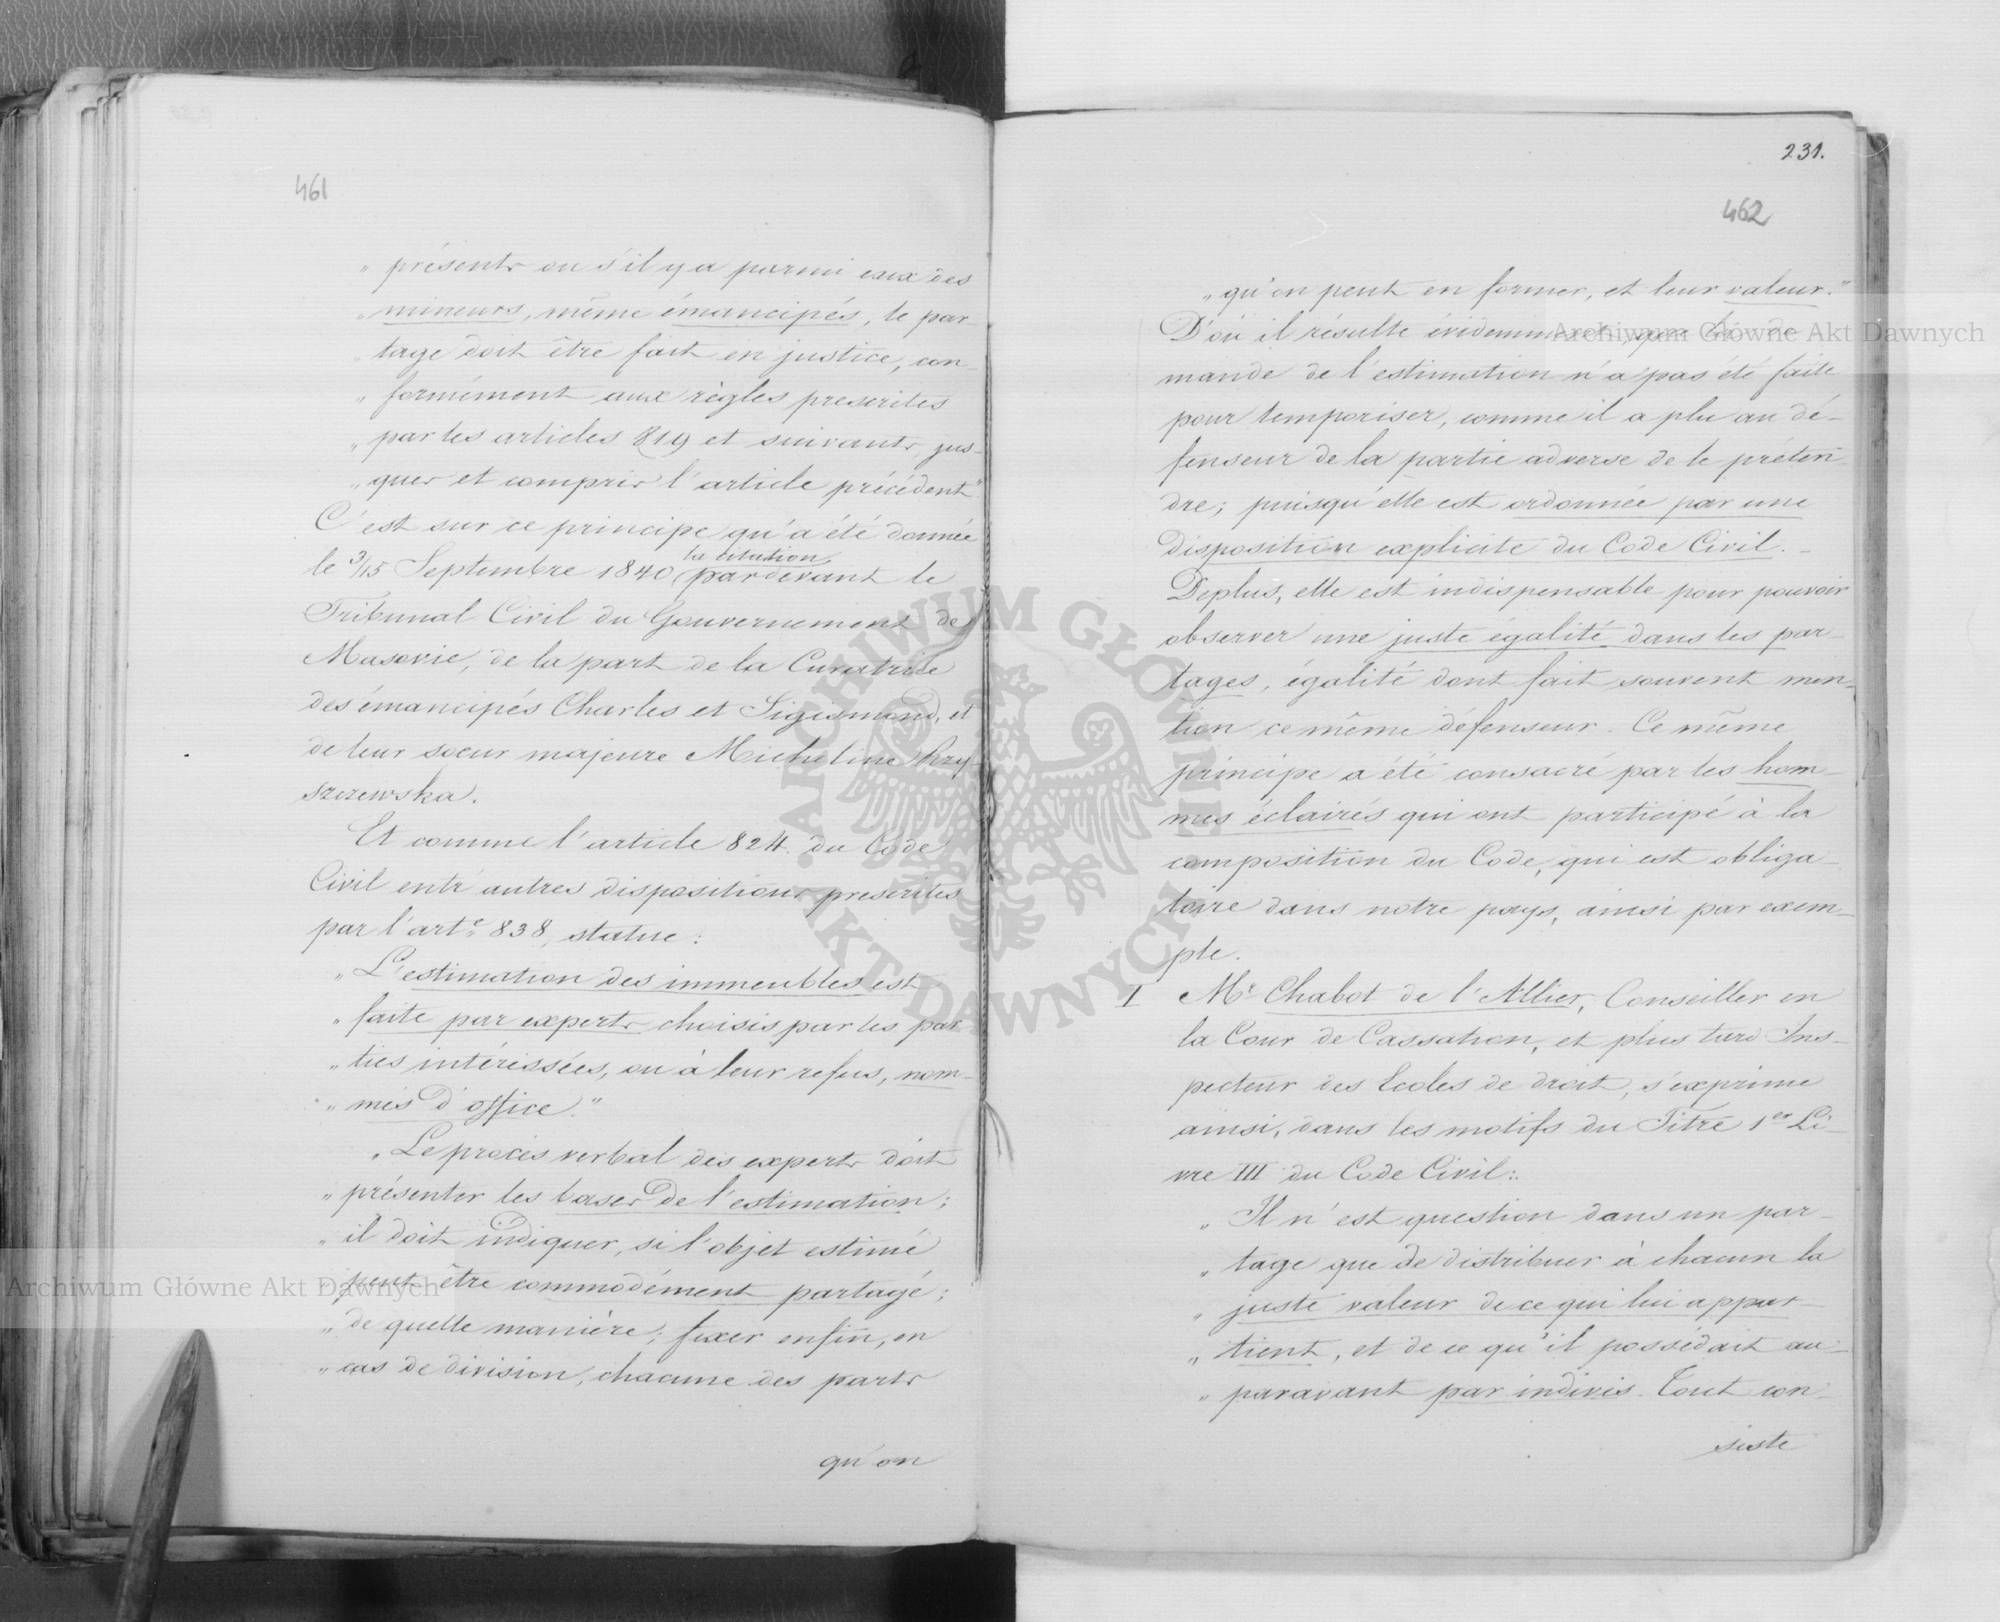 461
„ présents ou s'il y a parmi eux des
„ mineurs, même émancipés, le par-
„ tage doit être fait en justice, con-
„ formément aux règles prescrites
„ par les articles 819 et suivants, jus-
„ ques et compris l'article précédent"
C'est sur ce principe qu'a été donnée
la citation
le 3/15 Septembre 1840 pardevant le
Tribunal Civil du Gouvernement de
Masovie, de la part de la Curatrice
des émancipés Charles et Sigismond, et
de leur soeur majeure Micheline Rzy-
szczewska.
Et comme l'article 824. du Code
Civil entr'autres dispositions prescrites
par l'arte 838, statue:
„ L'estimation des immeubles est
„ faite par experts choisis par les par-
„ ties intéressées, ou à leur refus, nom-
„ més d'office."
„ Le procès verbal des experts doit
„ présenter les bases de l'estimation;
„ il doit indiquer, si l'objet estimé
peut être commodément partagé;
„ de quelle manière; fixer enfin, en
„ cas de division, chacune des parts
qu'on
231.
462
„ qu'on peut en former, et leur valeur."
D'où il résulte évidemment, que la de-
mande de l'estimation n'a pas été faite
pour temporiser, comme il a plu au dé-
fenseur de la partie adverse de le préten-
dre; puisqu'elle est ordonnée par une
disposition explicite du Code Civil. –
Deplus, elle est indispensable pour pouvoir
observer une juste égalité dans les par-
tages, égalité dont fait souvent men-
tion ce même défenseur. Ce même
principe a été consacré par les hom-
mes éclairés qui ont participé à la
composition du Code, qui est obliga-
toire dans notre pays, ainsi par exem-
ple.
I Mr Chabot de l'Allier, Conseiller en
la Cour de Cassation, et plus tard Ins-
pecteur des Ecoles de droit, s'exprime
ainsi, dans les motifs du Titre 1er Li-
vre III du Code Civil:.
„ Il n'est question dans un par-
„ tage que de distribuer à chacun la
„ juste valeur de ce qui lui appar-
„ tient, et de ce qu'il possédait au-
„ paravant par indivis. Tout con-
siste
Archiwum Główne Akt Dawnych
Archiwum Główne Akt Dawnych
ARCHIWUM GŁÓWNE AKT DAWNYCH